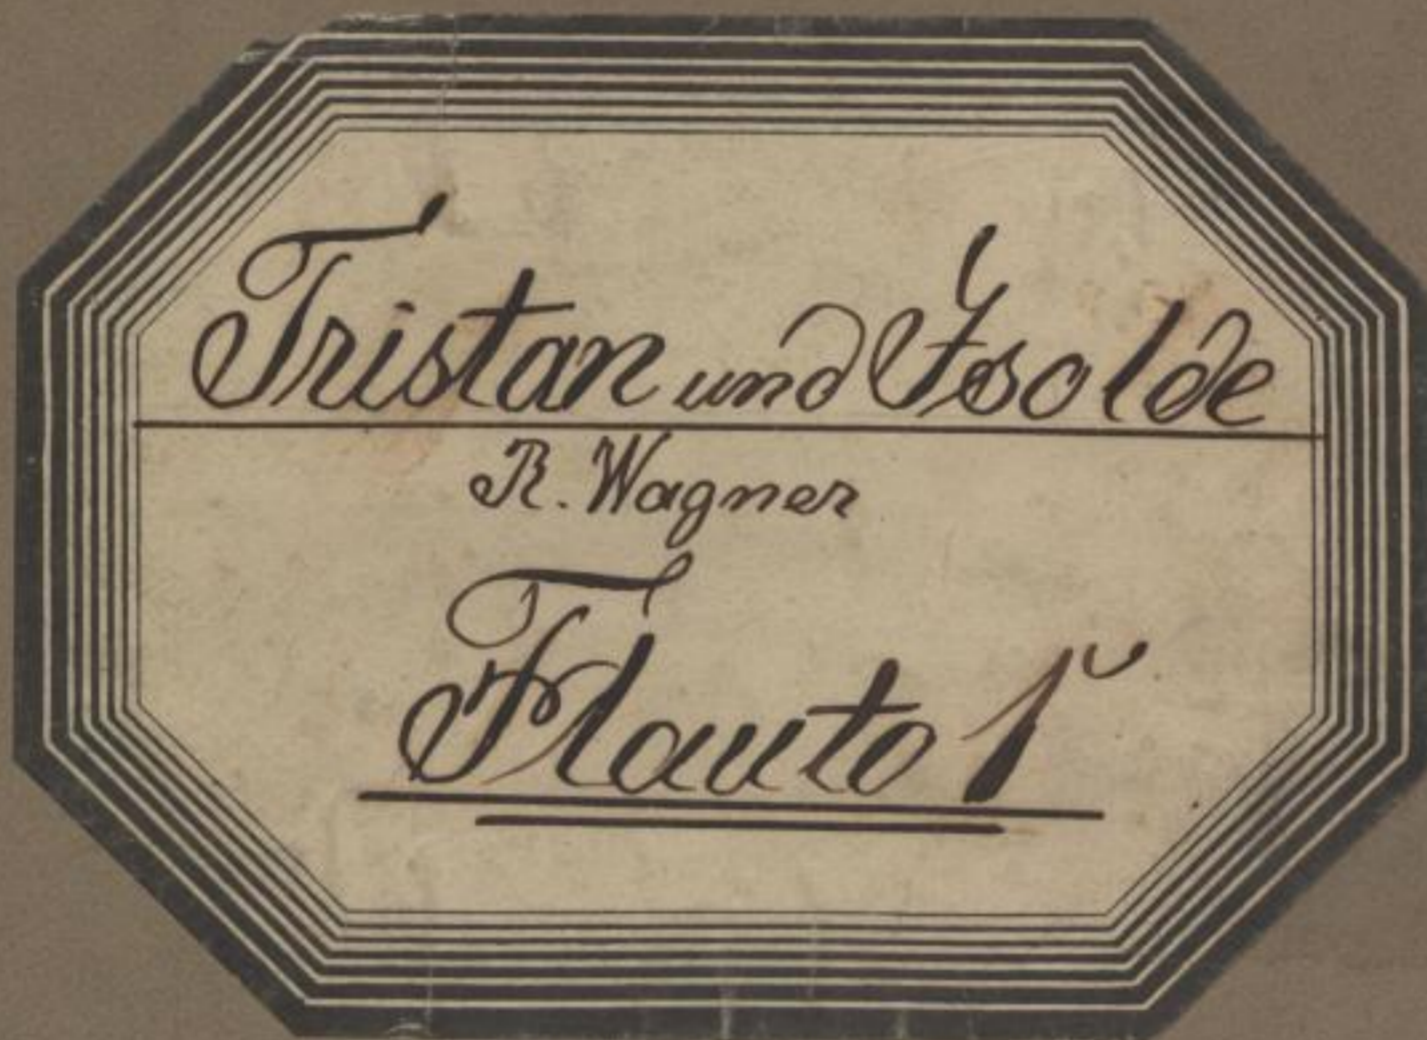 Tristan und Isolde
R. Wagner
Flauto 1º